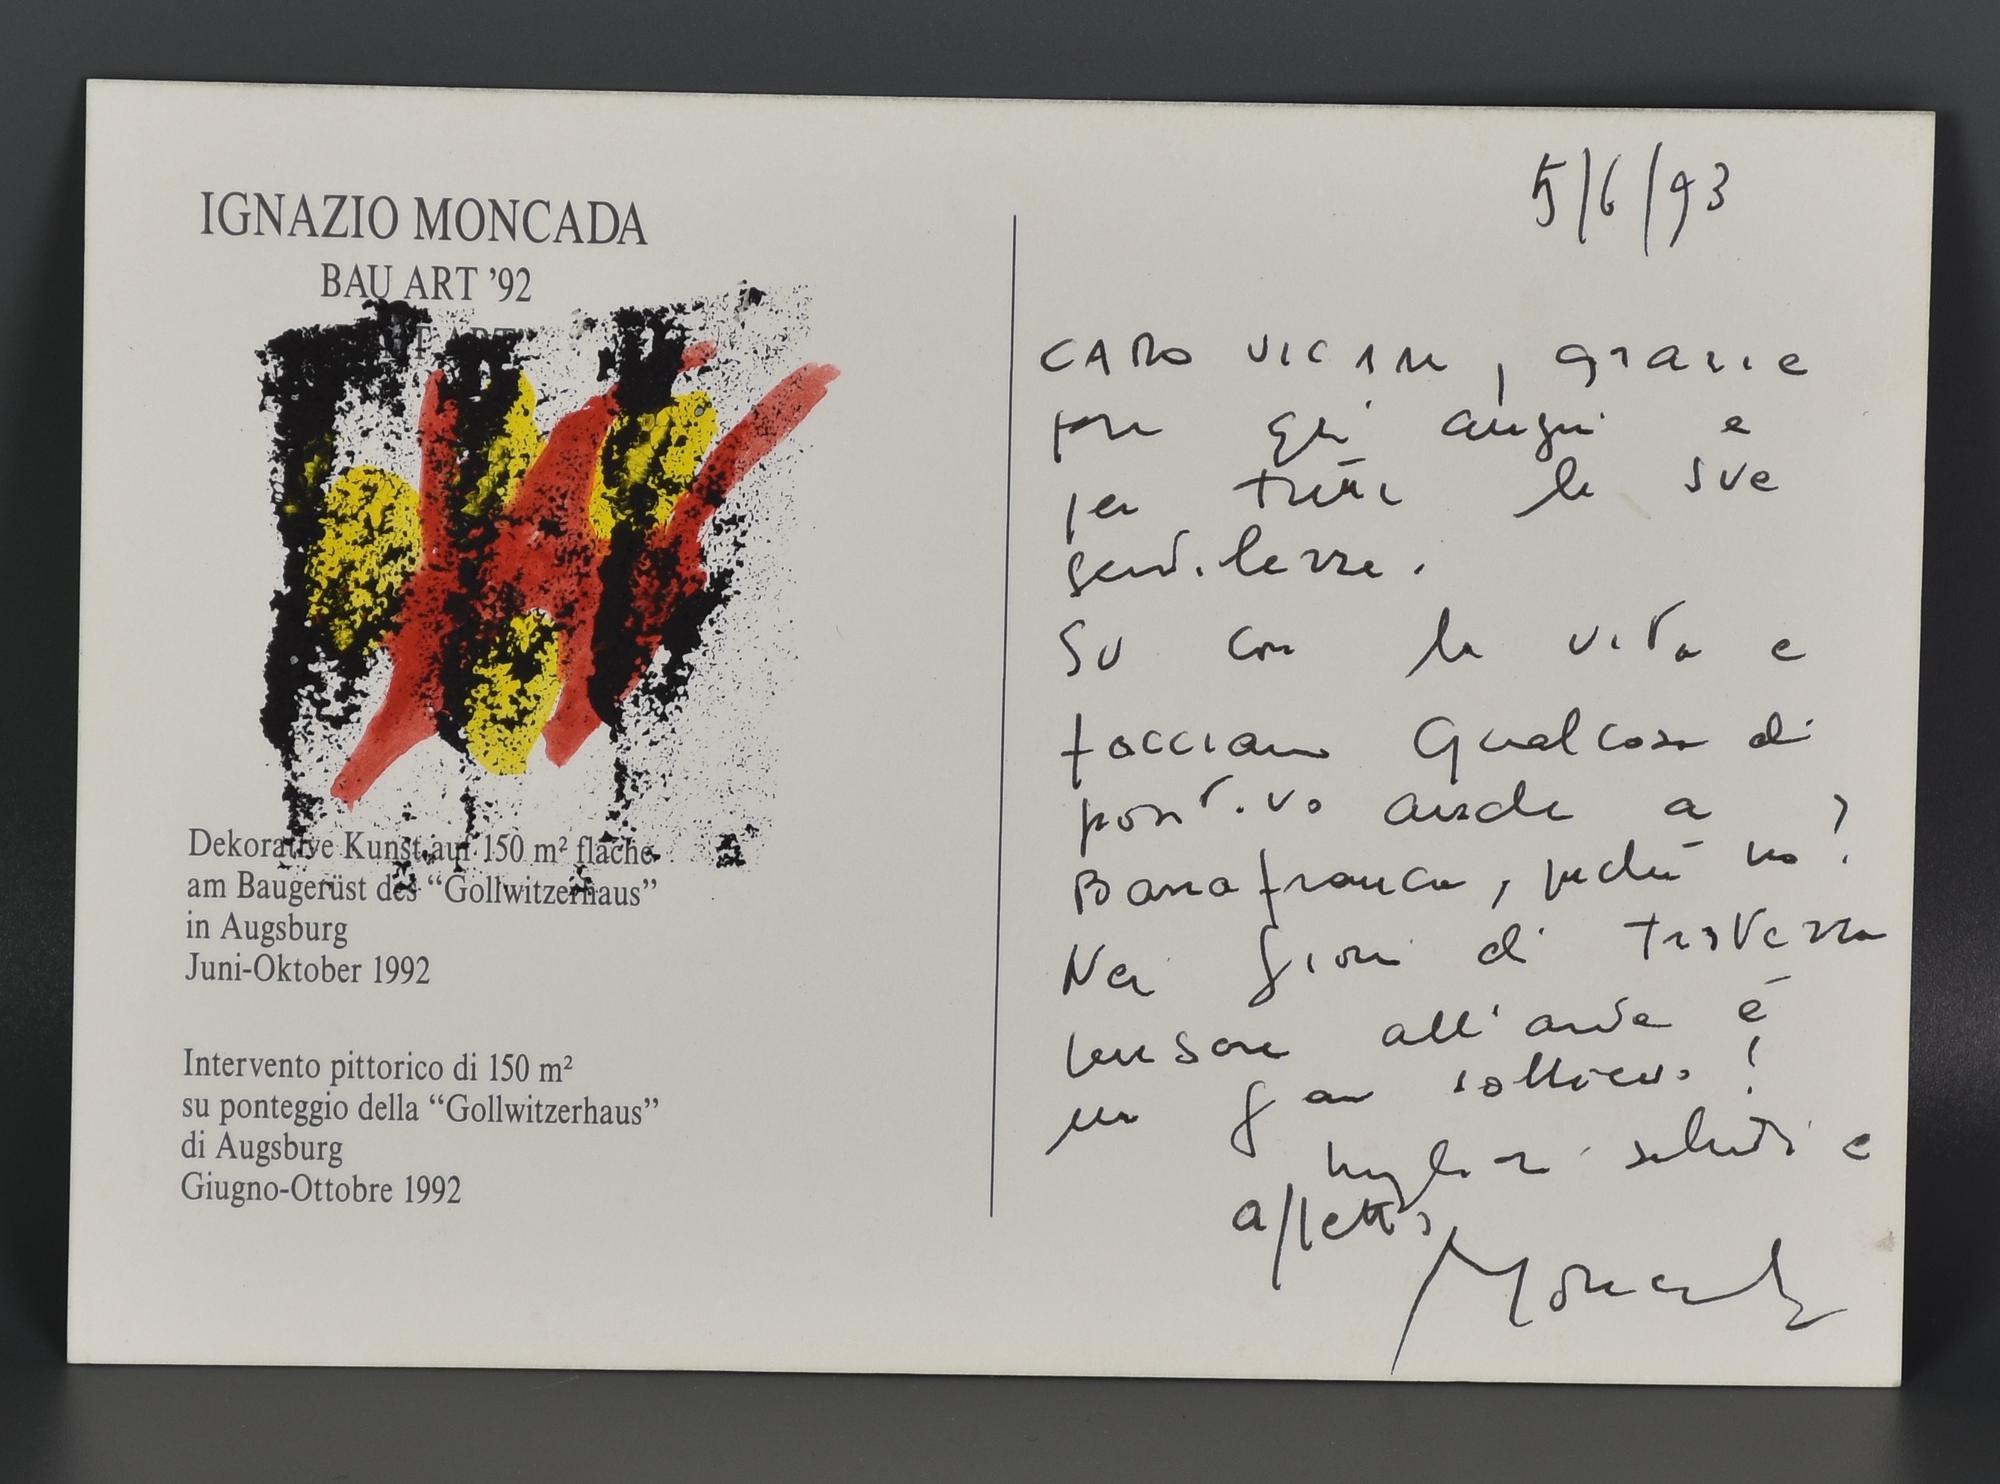 IGNAZIO MONCADA
BAU ART '92
Dekorative Kunst auf 150 m² fläche
am Baugerüst des “Gollwitzerhaus”
in Augsburg
Juni-Oktober 1992
Intervento pittorico di 150 m²
su ponteggio della “Gollwitzerhaus”
di Augsburg
Giugno-Ottobre 1992
5/6/93
CARO, grazie
per gli auguri e
per tutte le sue
gentilezze.
SU con la vita e
facciamo qualcosa di
positivo anche a
, perché no?
Nei giorni di tristezza
pensare all'arte è
un gran sollievo!
migliori saluti e
affetto
Moncada